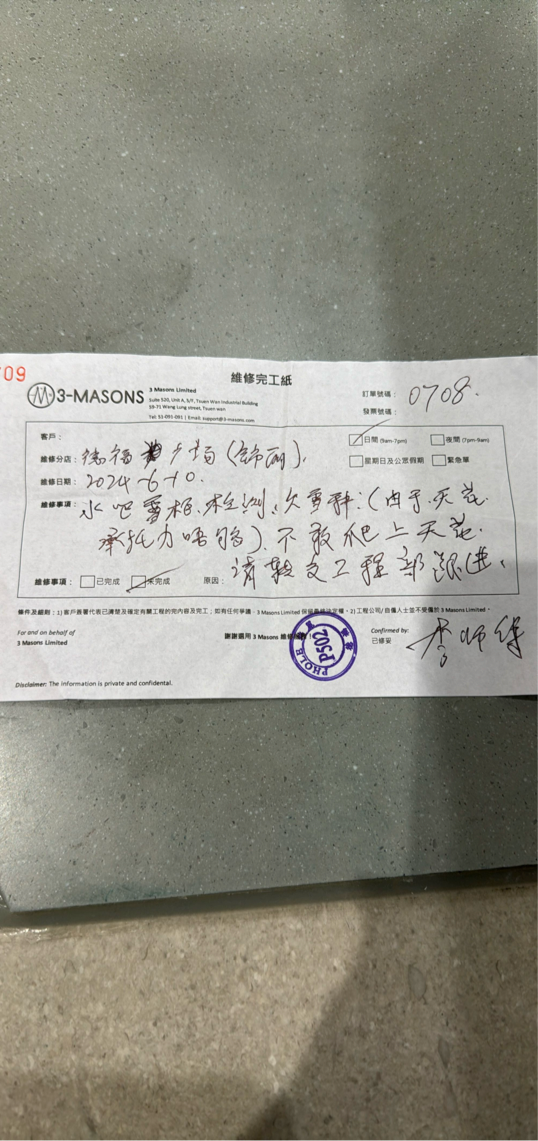 09
維修完工紙
3-MASONS
3 Masons Limited
Suite 520, Unit A, 5/F, Tsuen Wan Industrial Building
59-71 Wang Lung street, Tsuen wan
Tel: 51-091-091 | Email: support@3-masons.com
訂單號碼： 0708.
發票號碼：
客戶：
日間 (9am-7pm) 夜間 (7pm-9am)
維修分店： 德福 廣場
星期日及公眾假期 緊急單
維修日期： 2024-6-10.
維修事項： 水吧雪柜.檢測、欠雪種：(由于.天花.
承托力唔夠).不敢爬上天花.
維修事項： 已完成 未完成 原因： 請轉交工程部跟進.
條件及細則：1)客戶簽署代表已清楚及確定有關工程的完內容及完工；如有任何爭議，3 Masons Limited 保留最終決定權。2)工程公司/自僱人士並不受僱於 3 Masons Limited。
For and on behalf of
3 Masons Limited
謝謝選用 3 Masons 維修
P502
Confirmed by:
已修妥
李師傅
Disclaimer: The information is private and confidential.